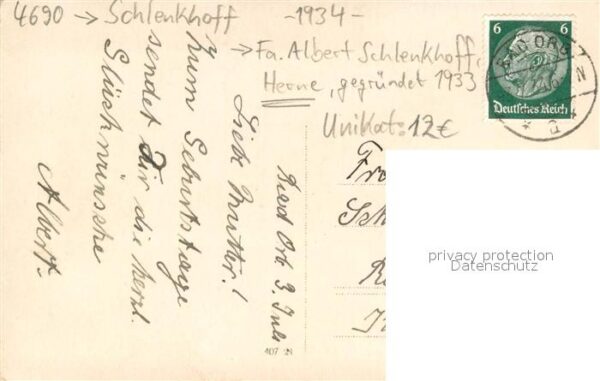 4690 → Schlenkhoff
-1934-
→ Fa. Albert Schlenkhoff,
Herne, gegründet 1933
Unikat: 12€
6 6
Deutsches Reich
BAD ORB
a
Bad Orb 3. Juli
Liebe Mutter!
Zum Geburtstage
sendet Dir die herzl.
Glückwünsche
Albert.
407
privacy protection
Datenschutz